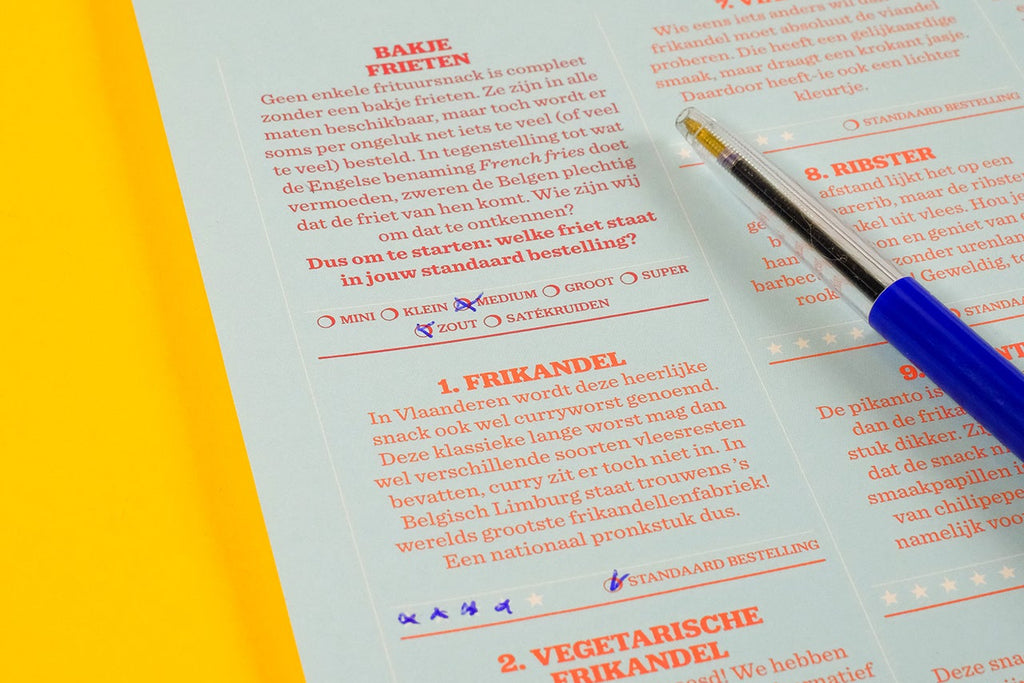 BAKJE
FRIETEN
Geen enkele frituursnack is compleet
zonder een bakje frieten. Ze zijn in alle
maten beschikbaar, maar toch wordt er
soms per ongeluk net iets te veel (of veel
te veel) besteld. In tegenstelling tot wat
de Engelse benaming French fries doet
vermoeden, zweren de Belgen plechtig
dat de friet van hen komt. Wie zijn wij
om dat te ontkennen?
Dus om te starten: welke friet staat
in jouw standaard bestelling?
MINI KLEIN MEDIUM GROOT SUPER
ZOUT SATÉKRUIDEN
1. FRIKANDEL
In Vlaanderen wordt deze heerlijke
snack ook wel curryworst genoemd.
Deze klassieke lange worst mag dan
wel verschillende soorten vleesresten
bevatten, curry zit er toch niet in. In
Belgisch Limburg staat trouwens 's
werelds grootste frikandellenfabriek!
Een nationaal pronkstuk dus.
STANDAARD BESTELLING
2. VEGETARISCHE
FRIKANDEL
We hebben
Wie eens iets anders wil
frikandel moet absoluut de viandel
proberen. Die heeft een gelijkaardige
smaak, maar draagt een krokant jasje.
Daardoor heeft-ie ook een lichter
kleurtje.
STANDAARD BESTELLING
8. RIBSTER
afstand lijkt het op een
maar de ribster
uit vlees. Hou je
en geniet van
zonder
Geweldig,
9.
De pikanto is
dan de
stuk dikker.
dat de snack
smaakpapillen
van
namelijk
Deze